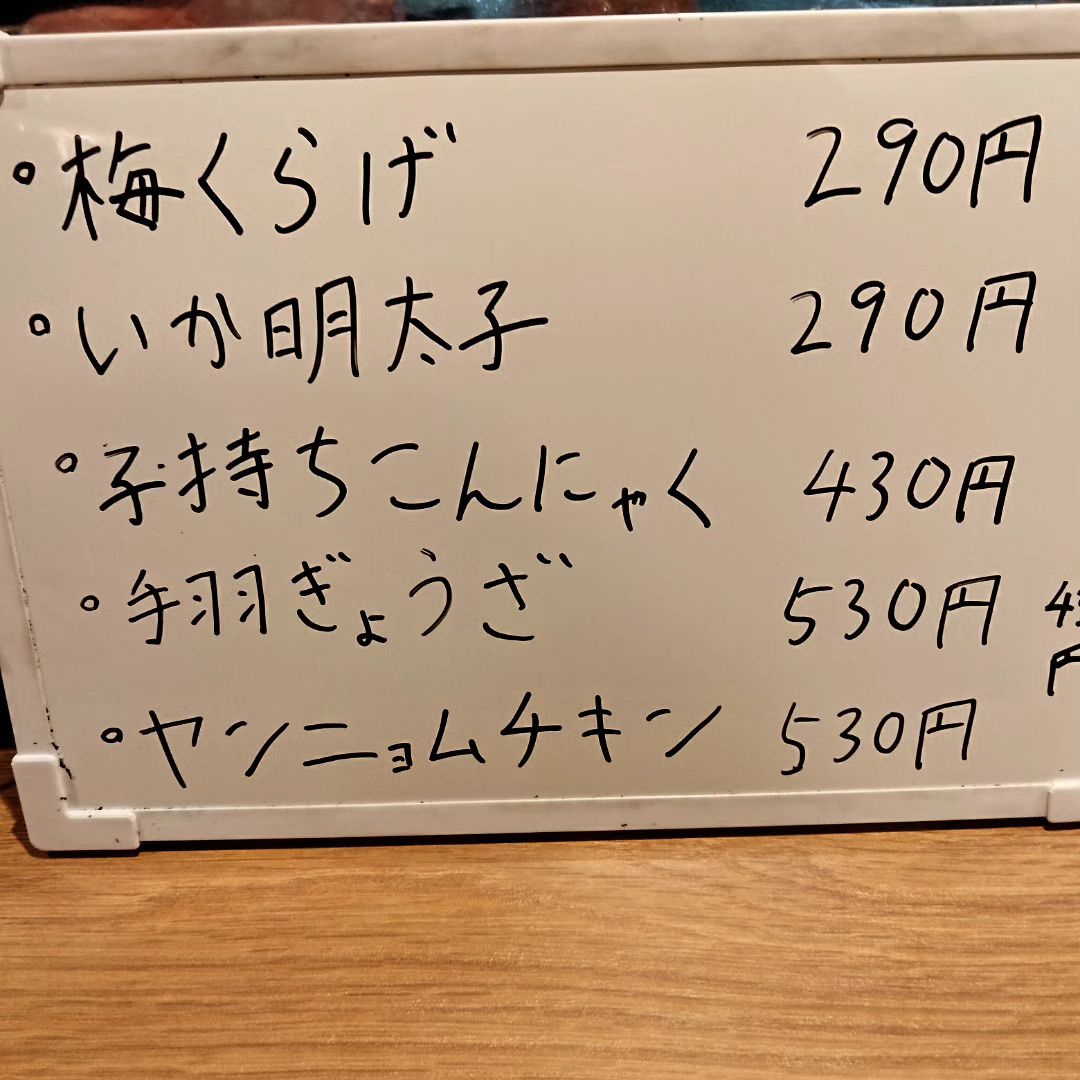 ・梅くらげ 290円
・いか明太子 290円
・子持ちこんにゃく 430円
・手羽ぎょうざ 530円
・ヤンニョムチキン 530円
円